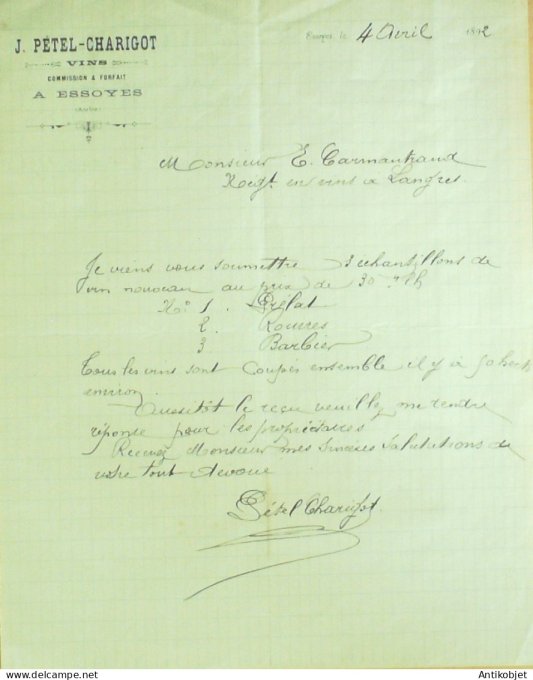 J. PÉTEL-CHARIGOT
VINS
COMMISSION & FORFAIT
A ESSOYES
(Aube)
Essoyes, le 4 Avril 1892
Monsieur E. Carmantrand
Negt en vins à Langres.
Je viens vous soumettre 3 echantillons de
vin nouveau au prix de 30
No 1. Prélat
2. Rouvres
3 Barbier
Tous les vins sont Coupés ensemble il y à 50
environ.
Aussitôt le reçu veuillez me rendre
réponse pour les propriétaires
Recevez Monsieur mes Sincères Salutations de
votre tout devoué
Pétel Charigot.
Antikobjet